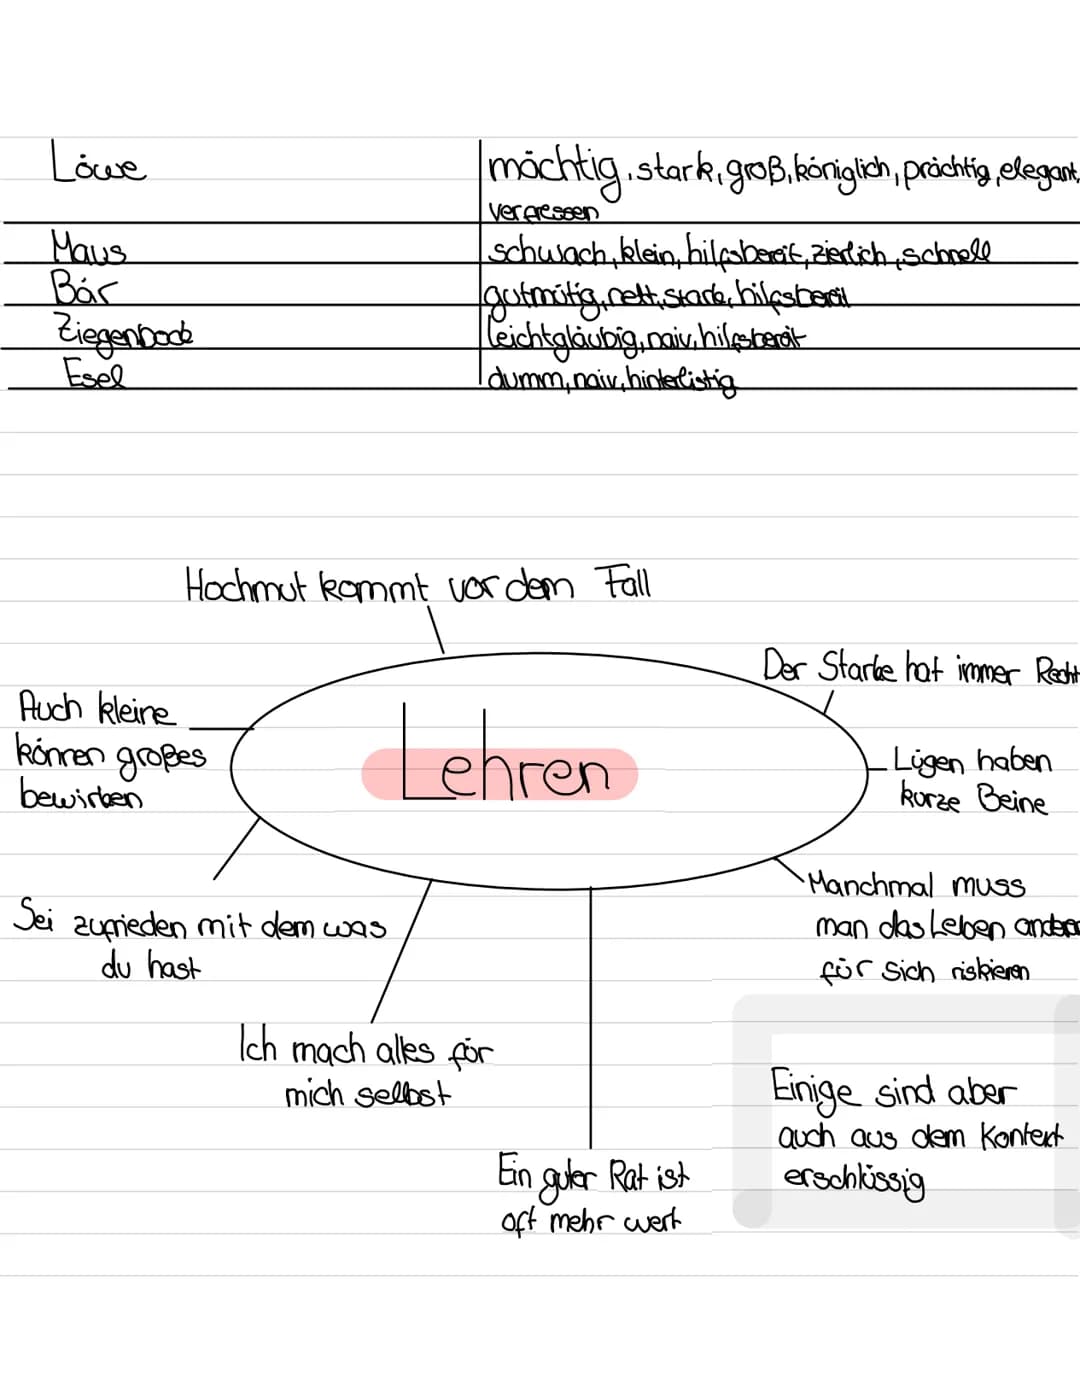 Löwe
mächtig, stark, groß, königlich, prächtig, elegant,
verfressen
Maus
schwach, klein, hilfsbereit, zierlich, schnell
Bär
gutmütig, nett, stark, hilfsbereit
Ziegenbock
leichtgläubig, naiv, hilfsbereit
Esel
dumm, naiv, hinterlistig
Hochmut kommt vor dem Fall
Der Starke hat immer Recht
Auch kleine
können großes
bewirken
Lehren
Lügen haben
kurze Beine
Manchmal muss
man das Leben anderer
für sich riskieren
Sei zufrieden mit dem was
du hast
Ich mach alles für
mich selbst
Einige sind aber
auch aus dem Kontext
erschlüssig
Ein guter Rat ist
oft mehr wert